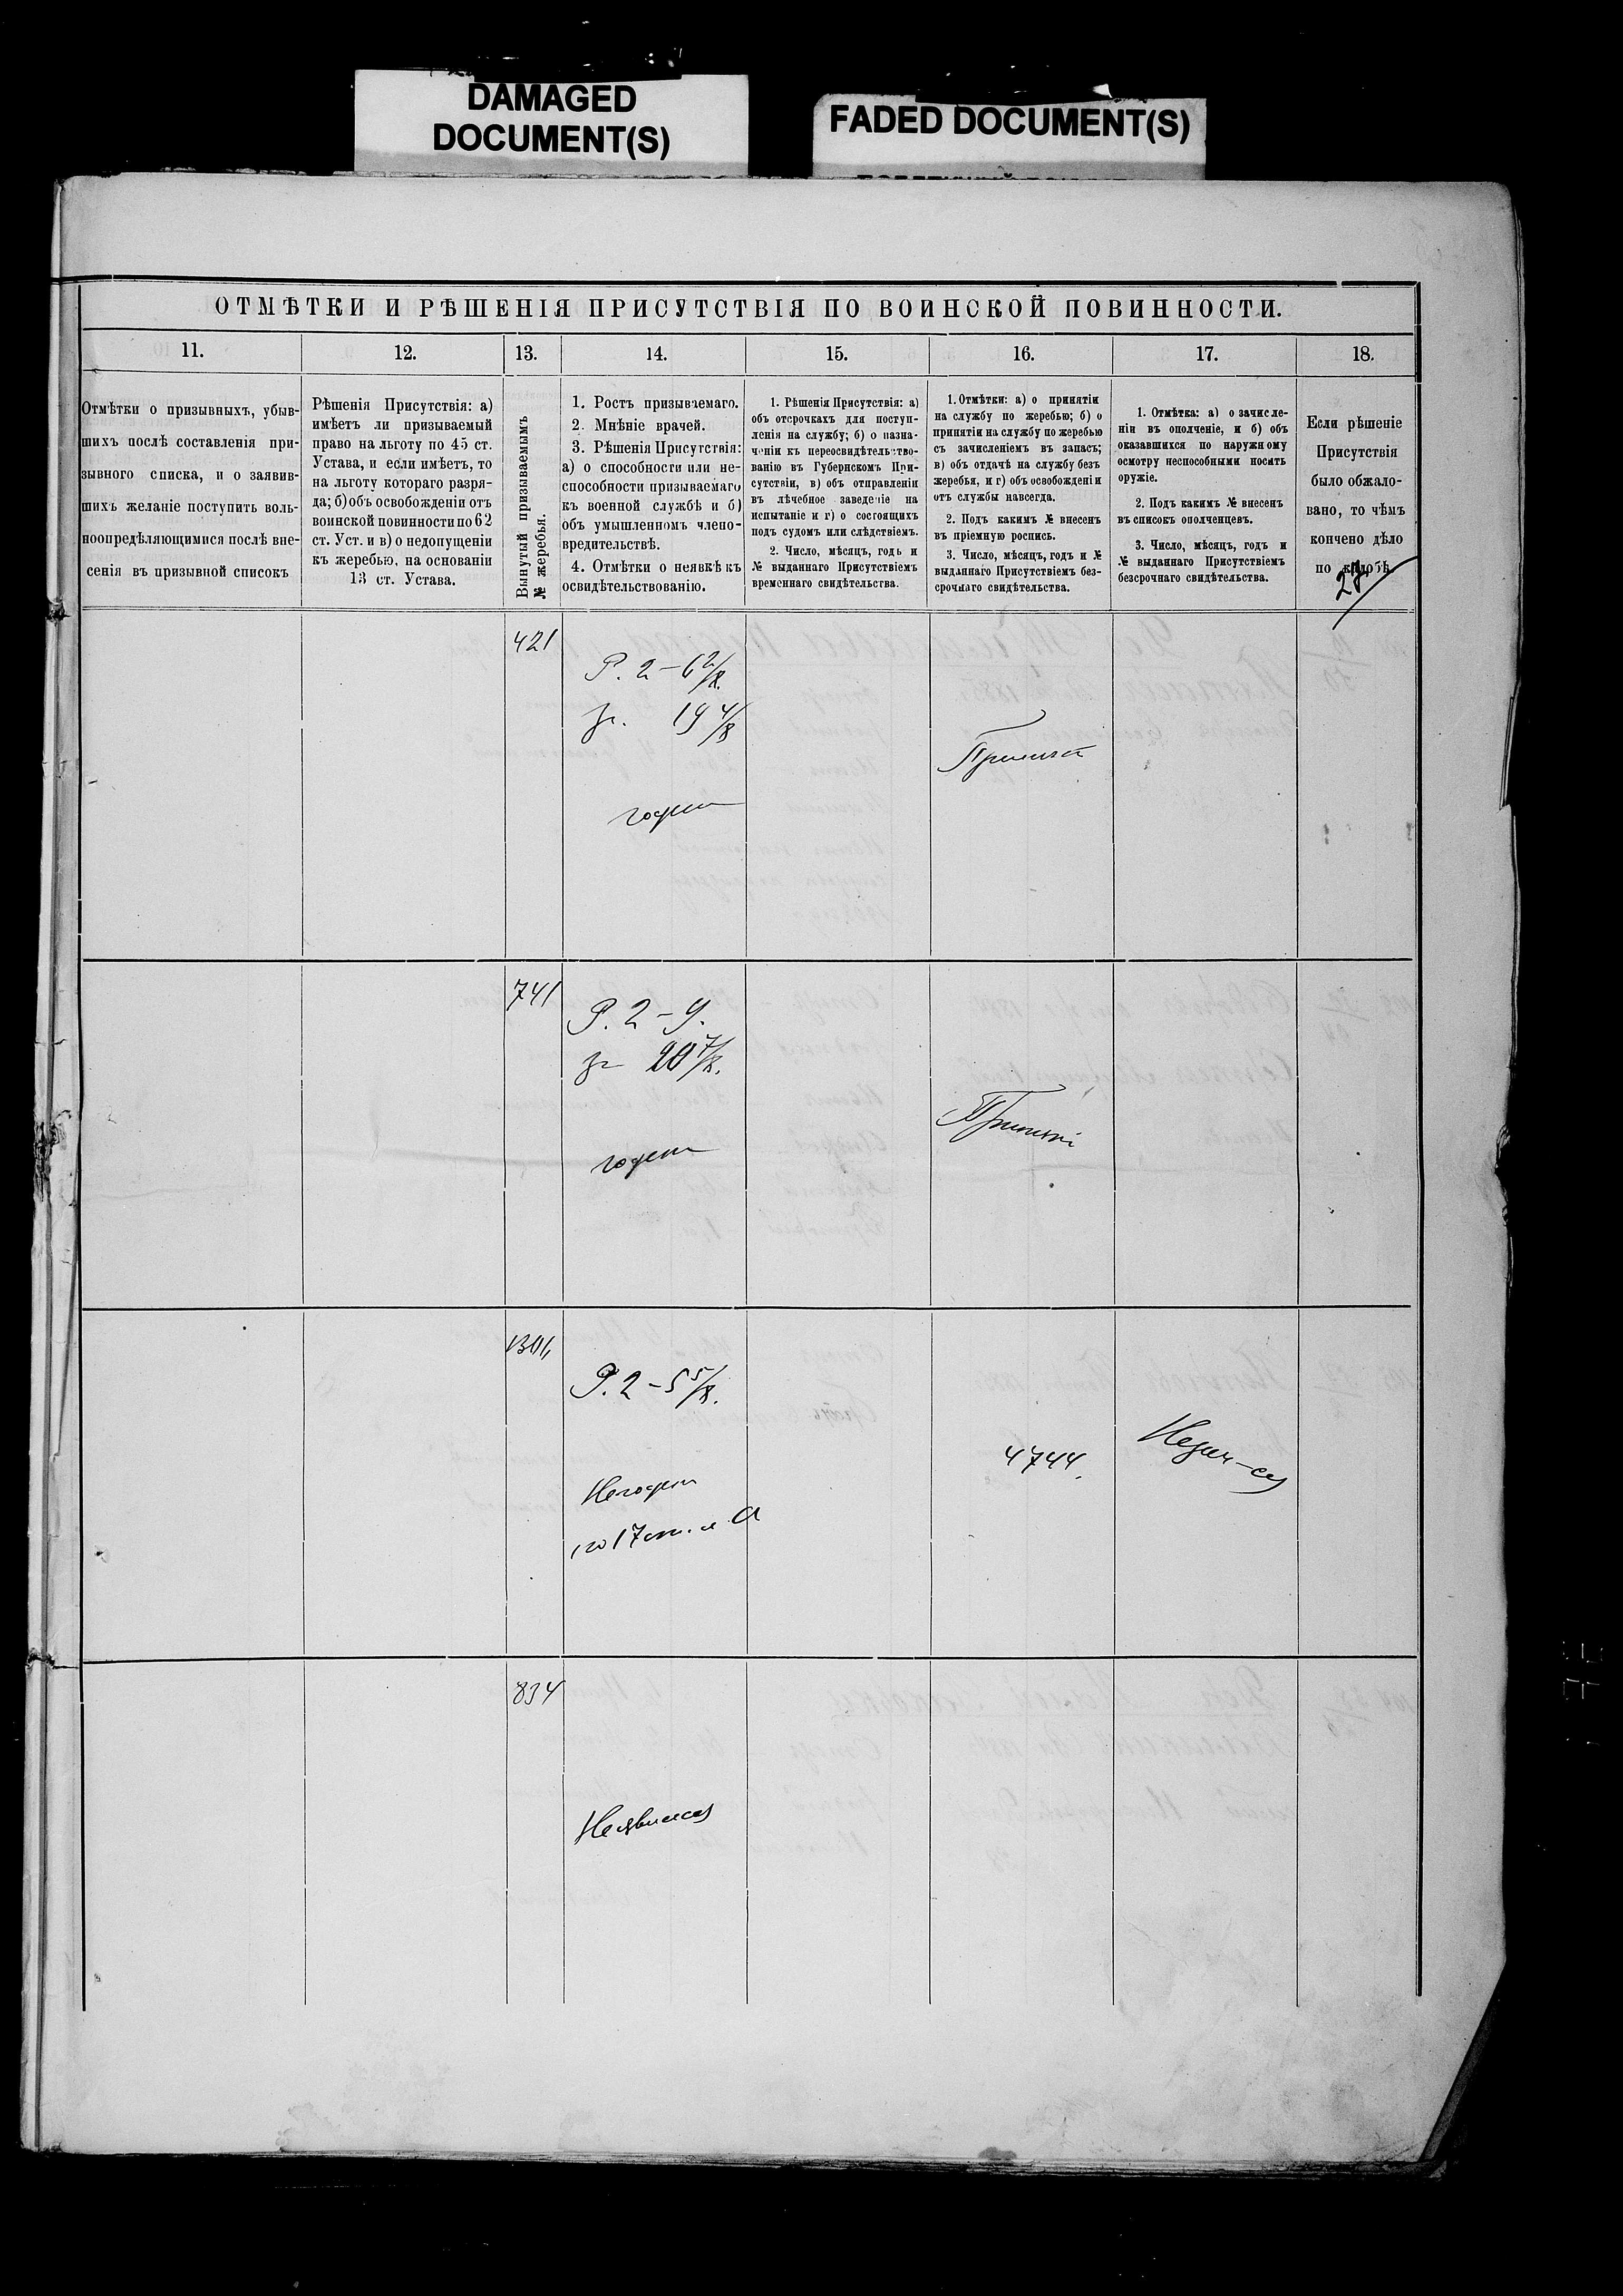 DAMAGED
DOCUMENT(S)
FADED DOCUMENT(S)
ОТМѢТКИ И РѢШЕНІЯ ПРИСУТСТВІЯ ПО ВОИНСКОЙ ПОВИННОСТИ.
11.
12.
13.
14.
15.
16.
17.
18.
Отмѣтки о призывныхъ, убыв-
шихъ послѣ составленія при-
зывного списка, и о заявив-
шихъ желаніе поступить воль-
ноопредѣляющимися послѣ вне-
сенія въ призывной списокъ
Рѣшенія Присутствія: а)
имѣетъ ли призываемый
право на льготу по 45 ст.
Устава, и если имѣетъ, то
на льготу котораго разря-
да; б) объ освобожденіи отъ
воинской повинности по 62
ст. Уст. и в) о недопущеніи
къ жеребью, на основаніи
13 ст. Устава.
Вынутый призываемымъ
№ жеребья.
1. Ростъ призываемаго.
2. Мнѣніе врачей.
3. Рѣшенія Присутствія:
а) о способности или не-
способности призываемаго
къ военной службѣ и б)
объ умышленномъ члено-
вредительствѣ.
4. Отмѣтки о неявкѣ къ
освидѣтельствованію.
1. Рѣшенія Присутствія: а)
объ отсрочкахъ для поступ-
ленія на службу; б) о назна-
ченіи къ переосвидѣтельство-
ванію въ Губернскомъ При-
сутствіи, в) объ отправленіи
въ лѣчебное заведеніе на
испытаніе и г) о состоящихъ
подъ судомъ или слѣдствіемъ.
2. Число, мѣсяцъ, годъ и
№ выданнаго Присутствіемъ
временнаго свидѣтельства.
1. Отмѣтки: а) о принятіи
на службу по жеребью; б) о
принятіи на службу по жеребью
съ зачисленіемъ въ запасъ;
в) объ отдачѣ на службу безъ
жеребья, и г) объ освобожденіи
отъ службы навсегда.
2. Подъ какимъ № внесенъ
въ пріемную роспись.
3. Число, мѣсяцъ, годъ и №
выданнаго Присутствіемъ без-
срочнаго свидѣтельства.
1. Отмѣтка: а) о зачисле-
ніи въ ополченіе, и б) объ
оказавшихся по наружному
осмотру неспособными носить
оружіе.
2. Подъ какимъ № внесенъ
въ списокъ ополченцевъ.
3. Число, мѣсяцъ, годъ и
№ выданнаго Присутствіемъ
безсрочнаго свидѣтельства.
Если рѣшеніе
Присутствія
было обжало-
вано, то чѣмъ
кончено дѣло
по жалобѣ
27
421
Р. 2 – 6 2/8.
гр. 19 4/8
годен
Принят
741
Р. 2 – 9.
гр 20 7/8.
годен
Принят
1301
Р. 2 – 5 5/8.
Негоден
по 17 ст. л А
4744.
834
Неявился